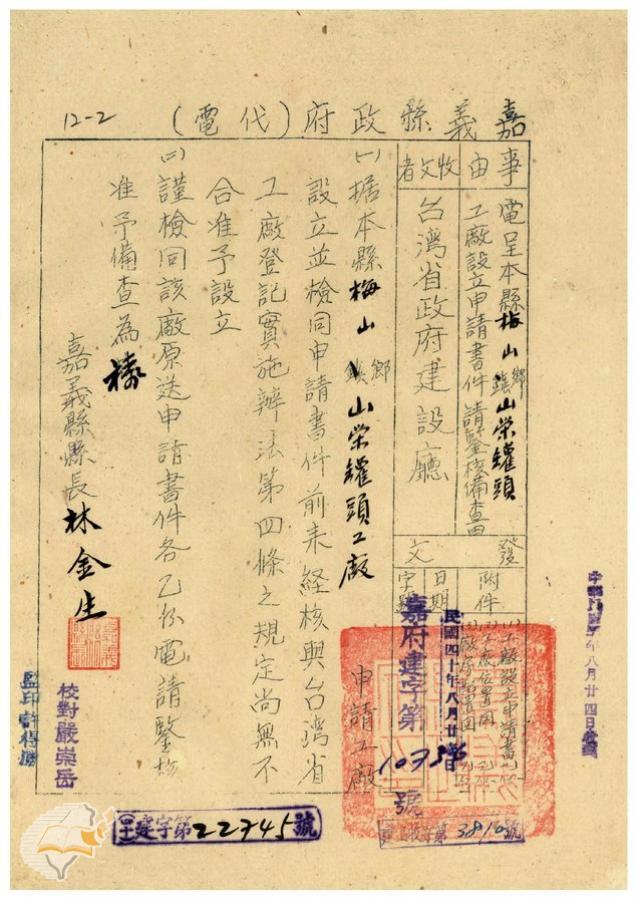 嘉義縣政府(代電)
12-2
事由
電呈本縣梅山鄉鎮山榮罐頭
工廠設立申請書件請鑒核備查由
收文者
台湾省政府建設廳
發文
附件
(1)工廠設立申請書
(2)工廠位置圖
日期
民國四十年八月廿
字號
嘉府建字第10375號
(一)据本縣梅山鄉鎮山榮罐頭工廠申請工廠
設立並檢同申請書件前来経核與台湾省
工廠登記實施辦法第四條之規定尚無不
合准予設立
(二)謹檢同該廠原送申請書件各乙份電請鑒核
准予備查為禱
嘉義縣縣長林金生
校對嚴崇岳
監印許得勝
建字第22745號
字第3810號
年八月廿四日